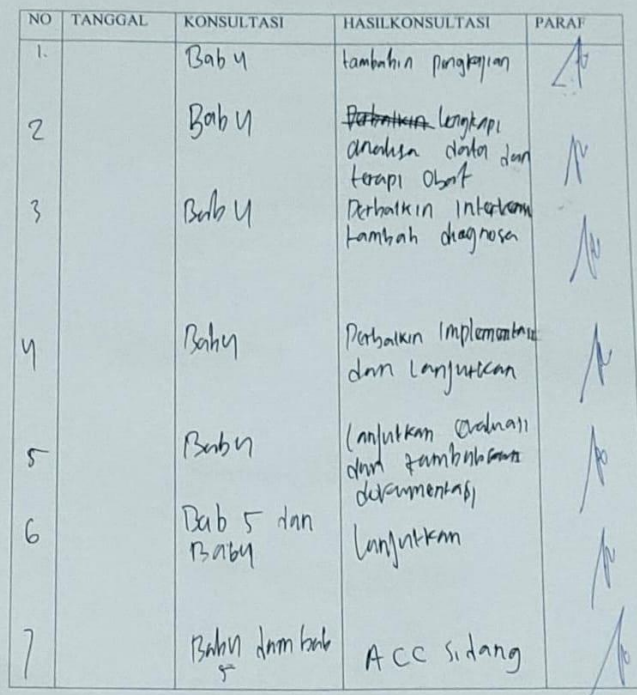 NO TANGGAL KONSULTASI HASILKONSULTASI PARAF
1. Bab 4 tambahin pengkajian
2 Bab 4 Perbaikin lengkapi
analisa data dan
terapi obat
3 Bab 4 Perbaikin intervensi
tambah diagnosa
4 Bab 4 Perbaikin implementasi
dan lanjutkan
5 Bab 4 lanjutkan evaluasi
dan tambahkan
dokumentasi
6 Bab 5 dan
Bab 4 lanjutkan
7 Bab 4 dan bab
5 ACC Sidang